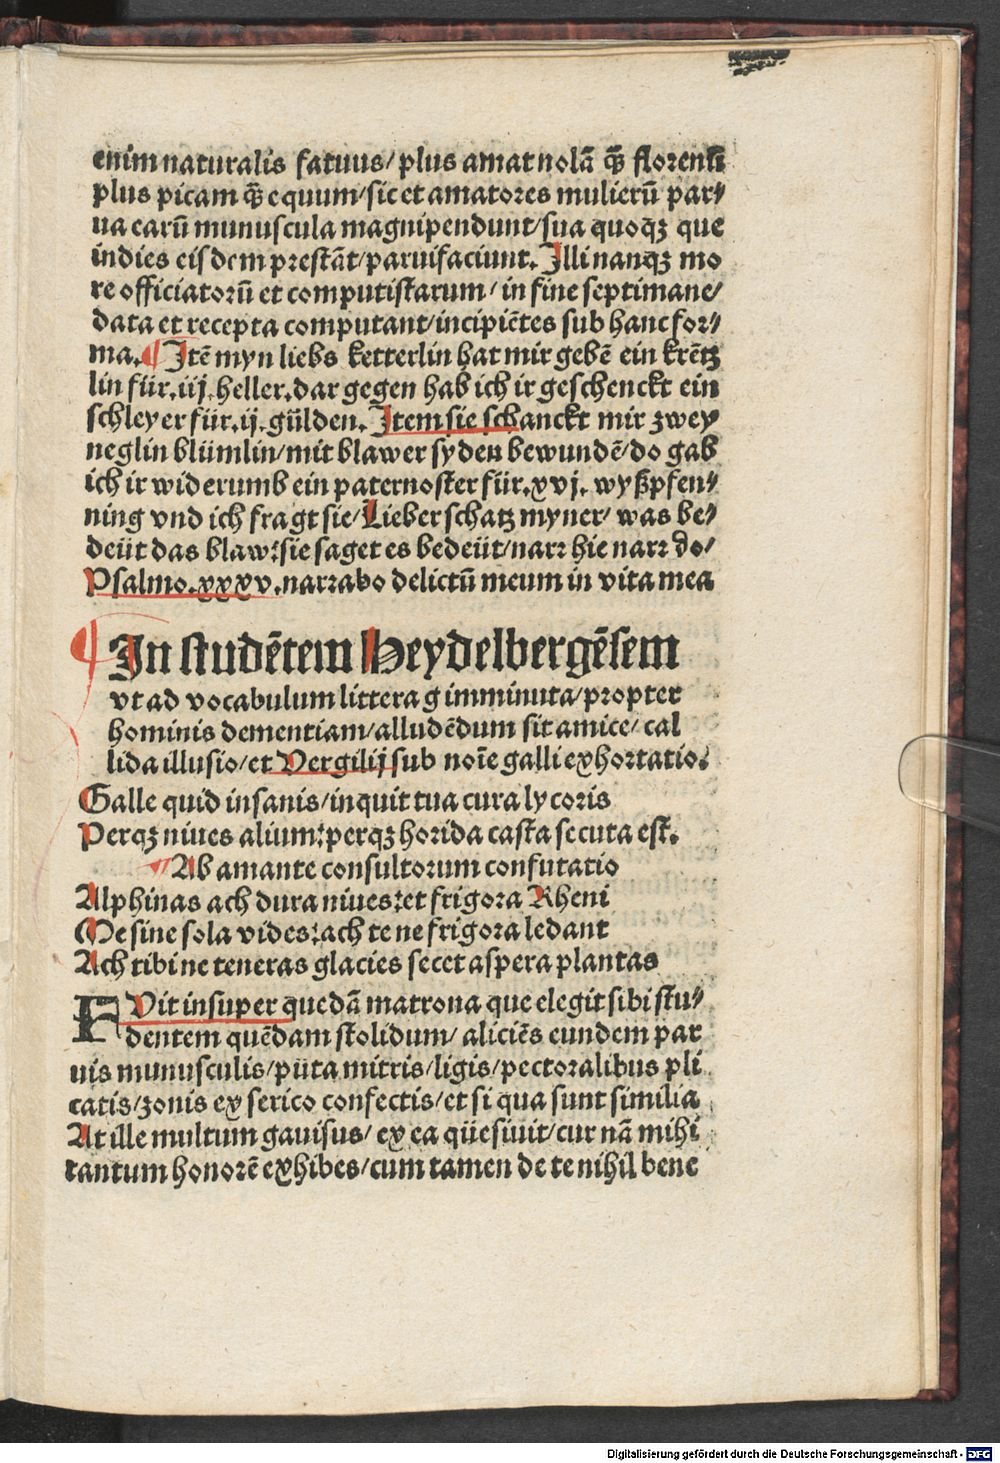 enim naturalis fatuus/ plus amat nolā q̄ꝫ florenū
plus picam q̄ꝫ equum/sic et amatores mulierū par⸗
ua earū munuscula magnipendunt/sua quoqꝫ que
indies eisdem prestāt/paruifaciunt. Illi nanqꝫ mo
re officiatorū et computistarum/ in fine septimane/
data et recepta computant/incipiētes sub hanc for⸗
ma. ¶ Itē myn liebs ketterlin hat mir gebē ein krētz
lin für.iij.heller.dar gegen hab ich ir geschenckt ein
schleyer für.ij.gülden. Item sie schanckt mir zwey
neglin blümlin/mit blawer syden bewundē/do gab
ich ir widerumb ein paternoster für.xvj. wyßpfen⸗
ning vnd ich fragt sie/Lieber schatz myner/ was be⸗
deüt das blaw:sie saget es bedeüt/narr hie narr do/
Psalmo.xxxv.narrabo delictū meum in vita mea
¶ In studētem Heydelbergēsem
vt ad vocabulum littera g imminuta/propter
hominis dementiam/alludēdum sit amice/ cal
lida illusio/et Vergilij sub noīe galli exhortatio.
Galle quid insanis/inquit tua cura lycoris
Perqꝫ niues alium:perqꝫ horida casta secuta est.
¶ Ab amante consultorum confutatio
Alphinas ach dura niues:et frigora Rheni
Me sine sola vides:ach te ne frigora ledant
Ach tibi ne teneras glacies secet aspera plantas
FVit insuper quedā matrona que elegit sibi stu⸗
dentem quēdam stolidum/ aliciēs eundem par
uis munusculis/püta mitris/ligis/pectoralibus pli
catis/zonis ex serico confectis/et si qua sunt similia
At ille multum gauisus/ ex ea qüesiuit/cur nā mihi
tantum honorē exhibes/cum tamen de te nihil bene
Digitalisierung gefördert durch die Deutsche Forschungsgemeinschaft - DFG